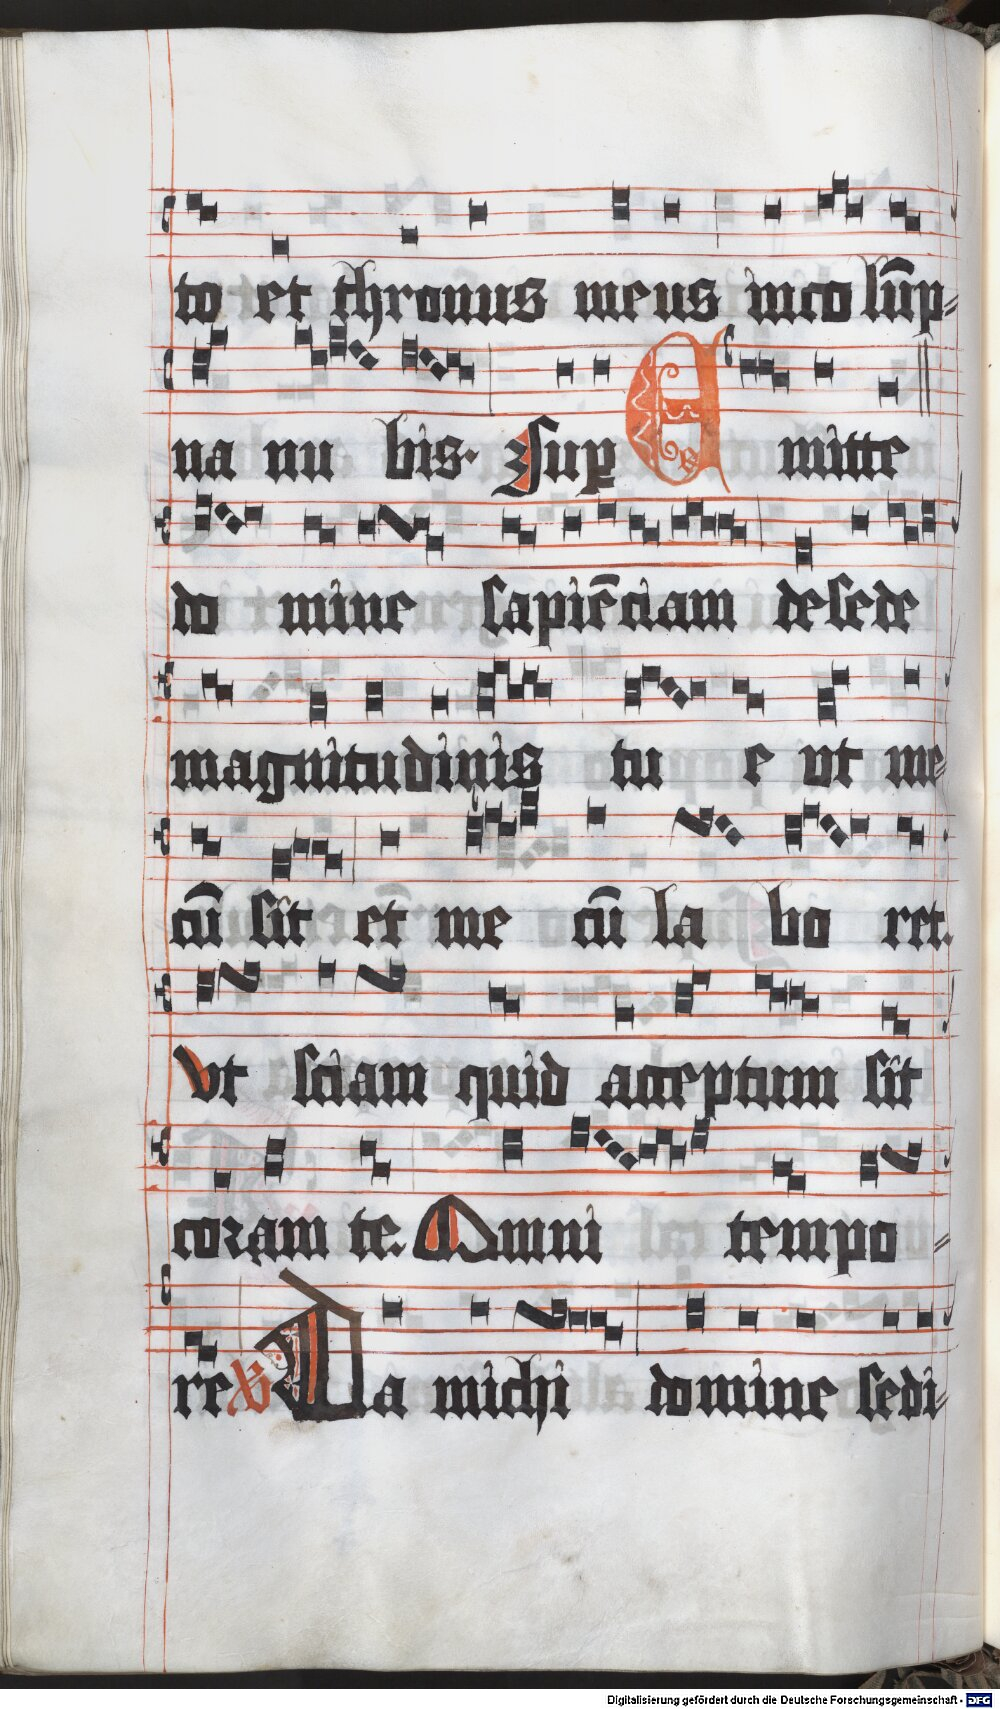 to et thronus meus inco lūp⸗
na nu bis. Sup E mitte
do mine sapiēciam desede
magnitudinis tu e vt me⸗
cū sit et̄ me cū la bo ret.
Vt sciam quid acceptum sit
coram te. Omni tempo⸗
re V Da michi domine sedi⸗
Digitalisierung gefördert durch die Deutsche Forschungsgemeinschaft - DFG